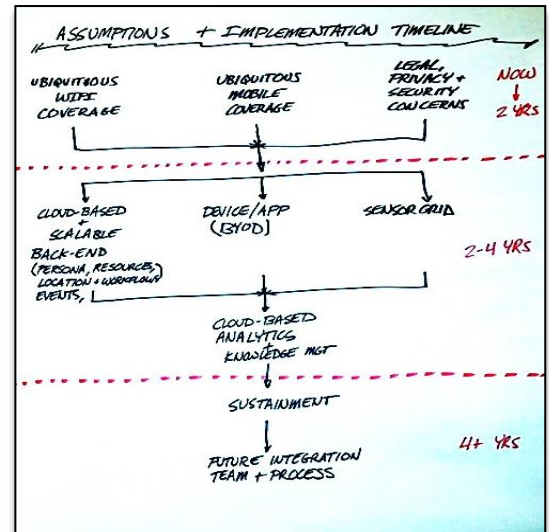 ASSUMPTIONS + IMPLEMENTATION TIMELINE
UBIQUITOUS
WIFI
COVERAGE
UBIQUITOUS
MOBILE
COVERAGE
LEGAL,
PRIVACY +
SECURITY
CONCERNS
NOW
2 YRS
CLOUD-BASED
+
SCALABLE
BACK-END
(PERSONA, RESOURCES,
LOCATION + WORKFLOWS
EVENTS,
DEVICE/APP
(BYOD)
SENSOR GRID
2-4 YRS
CLOUD-BASED
ANALYTICS
+
KNOWLEDGE MGT
SUSTAINMENT
4+ YRS
FUTURE INTEGRATION
TEAM + PROCESS